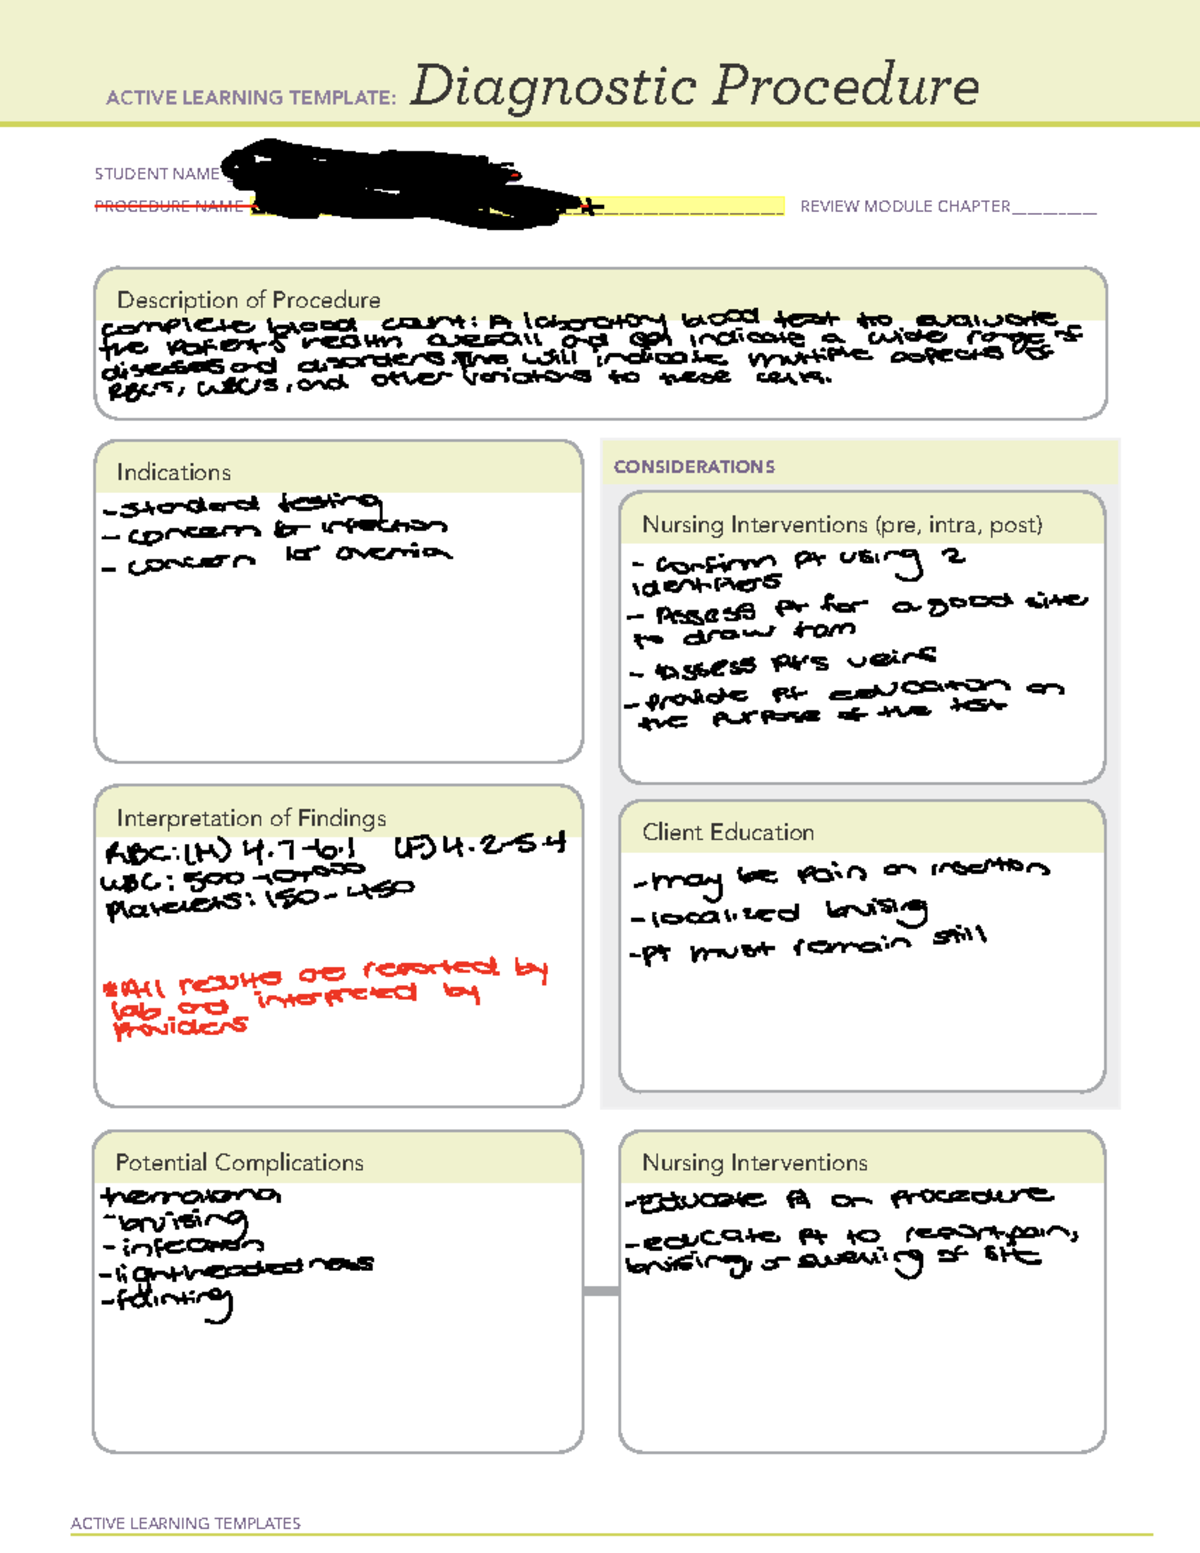 ACTIVE LEARNING TEMPLATE: Diagnostic Procedure
STUDENT NAME
PROCEDURE NAME
REVIEW MODULE CHAPTER
Description of Procedure
complete blood count: A laboratory blood test to evaluate
the patient's health overall and can indicate a wide range of
diseases and disorders. This will indicate multiple aspects of
RBC's, WBC's, and other variations to these cells.
Indications
- standard testing
- concern for infection
- concern for
CONSIDERATIONS
Nursing Interventions (pre, intra, post)
- confirm pt using 2
identifiers
- Assess pt for a good site
to draw from
- Assess pt's veins
- provide pt education on
the purpose of the test
Interpretation of Findings
RBC: (M) 4.7-6.1 (F) 4.2-5.4
WBC: 500-10,000
Platelets: 150-450
*All results are reported by
lab and interpreted by
providers
Client Education
- may be pain on insertion
- localized bruising
- pt must remain still
Potential Complications
hematoma
- bruising
- infection
- lightheadedness
- fainting
Nursing Interventions
- Educate pt on procedure
- educate pt to report pain,
bruising, or swelling of site
ACTIVE LEARNING TEMPLATES